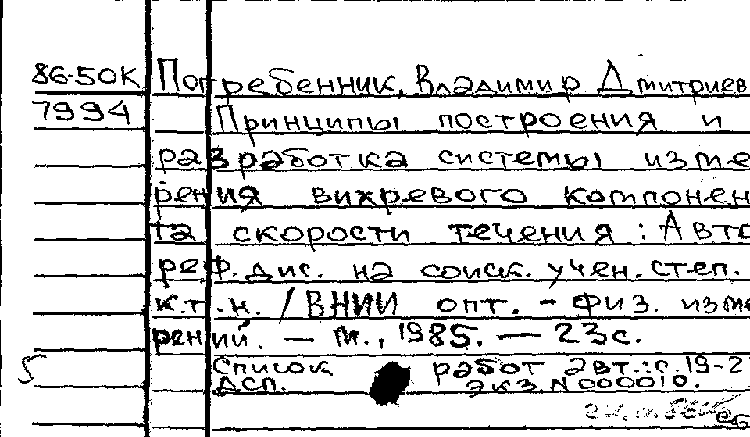 86-50К Погребенник, Владимир Дмитриев
7994 Принципы построения и
разработка системы изме
рения вихревого компонен
та скорости течения : Авто
реф. дис. на соиск. учен. степ.
к.т.н. / ВНИИ опт. - физ. изме
рений. — М., 1985. — 23с.
Список работ авт.: с. 19-2
ДСП. экз. N 000010.